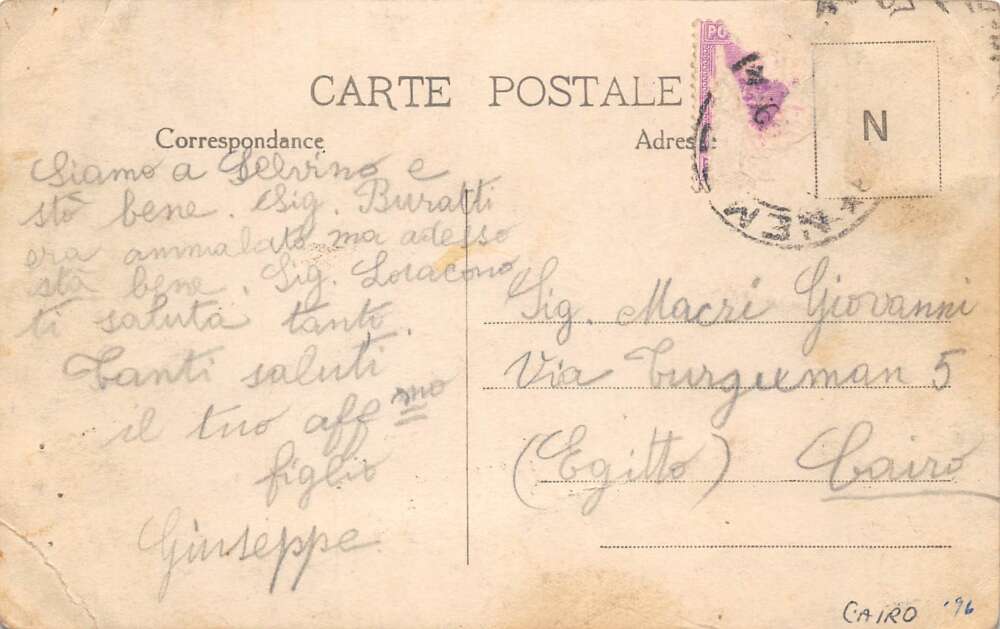 CARTE POSTALE
Correspondance
Siamo a Selvino e
stò bene. Sig. Buratti
era ammalato ma adesso
stà bene. Sig. Loiacono
ti saluta tanto.
Tanti saluti
il tuo aff mo
figlio
Giuseppe
PO
N
Sig. Macrí Giovanni
Via Turguman 5
(Egitto) Cairo
CAIRO '96